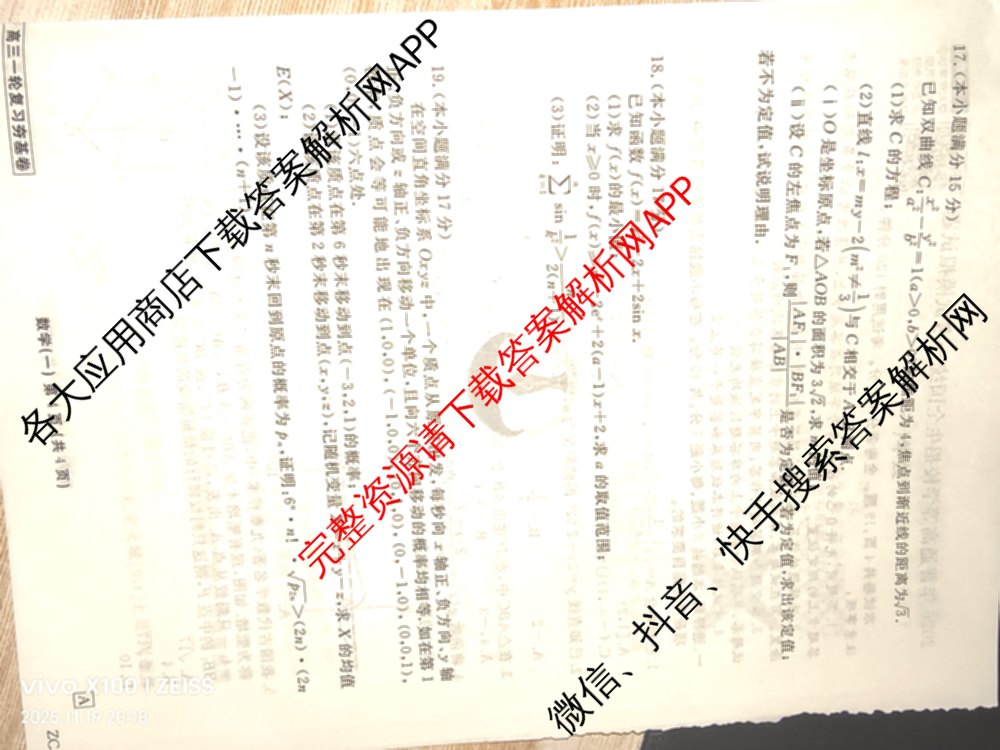 高三一轮复习夯基卷
17.(本小题满分15分)
已知双曲线C:x²/a²-y²/b²=1(a>0,b>
距为4,焦点到渐近线的距离为√3.
(1)求C的方程;
(2)直线l:x=my-2(m²≠1/3)与C相交于A
(ⅰ)O是坐标原点,若△AOB的面积为3√2,求
(ⅱ)设C的左焦点为F₁,则|AF₁|·|BF₁|/|AB|是否为定
为定值,求出该定值;
若不为定值,试说明理由.
18.(本小题满分1
已知函数f(x)=
2x+2sin x.
(1)求f(x)的最小
(2)当x≥0时,f(x)
+2(a-1)x+2,求a的取值范围;
(3)证明:
19.(本小题满分17分)
在空间直角坐标系Oxyz中,一个质点从
发,每秒向x轴正、负方向、y轴
负方向或z轴正、负方向移动一个单位,且向六
移动的概率均相等.如在第1
质点会等可能地出现在(1,0,0),(-1,0,0),
(0,-1,0),(0,0,1),
六点处.
质点在第6秒末移动到点(-3,2,1)的概率;
点在第2秒末移动到点(x,y,z),记随机变量
求X的均值
E(X);
(3)设该
第n秒末回到原点的概率为pₙ,证明:6ⁿ·n!·√p₂ₙ>(2n)·(2n
-1)·…·(n
数学(一) 第
页(共4页)
A
ZC
各大应用商店下载答案解析网APP
完整资源请下载答案解析网APP
微信、抖音、快手搜索答案解析网
vivo X100 | ZEISS
2025.11.19 20:18